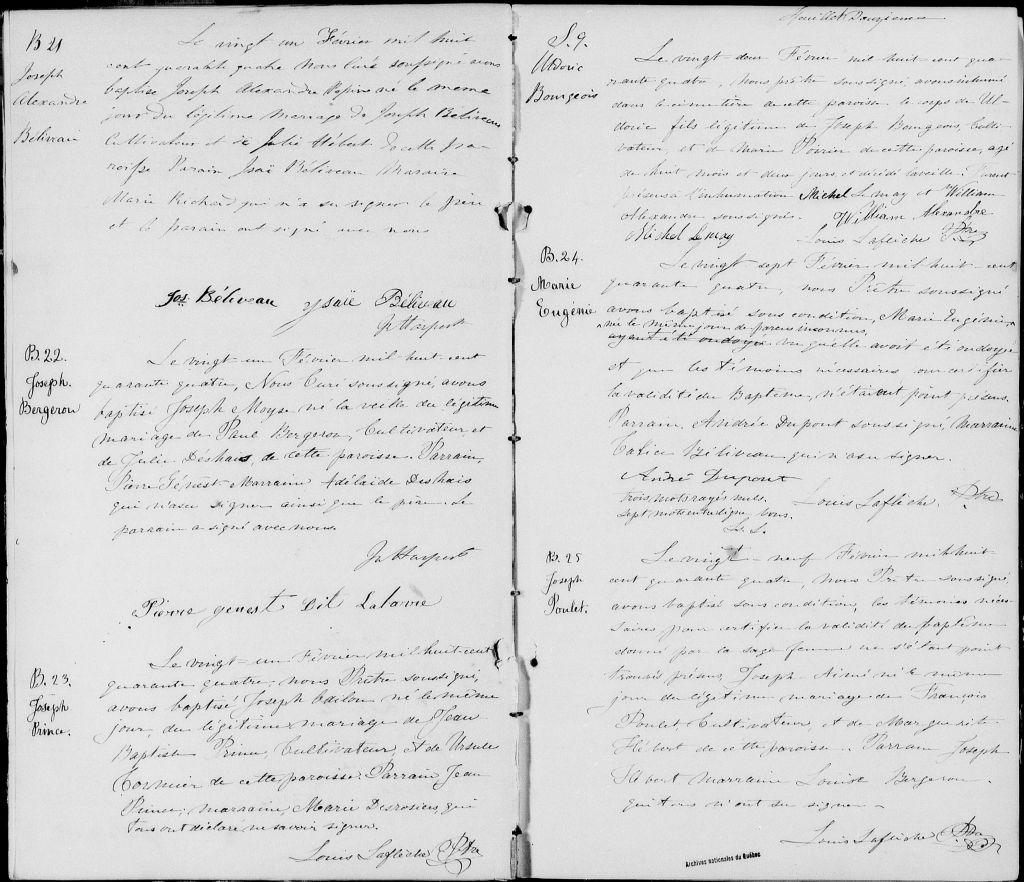 B 21
Joseph
Alexandre
Béliveau
Le vingt un Février mil huit
cent quarante quatre Nous Curé soussigné avons
baptisé Joseph Alexandre né le meme
jour du légitime mariage de Joseph Béliveau
Cultivateur et de Julie Hébert de cette Pa-
roisse Parain Isaï Béliveau Maraine
Marie Richard qui n'a su signer le père
et le parain ont signé avec nous
Jos Béliveau ysaïe Béliveau
B. 22.
Joseph.
Bergeron
Le vingt-un Février mil huit cent
quarante quatre, Nous Curé soussigné, avons
baptisé Joseph Moyse né la veille du légitime
mariage de Paul Bergeron, Cultivateur, et
de Julie Deshais, de cette paroisse. Parrain,
Pierre Génest. Marraine Adélaide Deshais
qui n'a su signer ainsi que le père. Le
parrain a signé avec nous.
Pierre genest Dit Labarre
B. 23.
Joseph
Prince.
Le vingt-un Février mil huit cent
quarante quatre, nous Prêtre soussigné,
avons baptisé Joseph Odilon né le même
jour, du légitime mariage de Jean
Baptiste Prince, Cultivateur, et de Ursule
Cormier de cette paroisse. Parrain Jean
Prince, marraine, Marie Desrosiers, qui
tous ont déclaré ne savoir signer.
Louis Lafleche Ptre
Feuillet Douzieme
S. 9.
Uldoric
Bourgeois
Le vingt deux Février mil huit cent qua-
rante quatre, Nous prêtre soussigné, avons inhumé
dans le cimetière de cette paroisse le corps de Ul-
doric fils légitime de Joseph Bourgeois, Culti-
vateur, et de Marie Poirier de cette paroisse, agé
de huit mois et deux jours et décédé la veille. Furent
présens à l'inhumation Michel Lemay et William
Alexandre soussignés. William Alexandre
Michel Lemay Louis Lafleche Ptre
B. 24.
Marie
Eugénie
Le vingt-sept Février mil huit-cent
quarante quatre, nous Prêtre soussigné
avons baptisé sous condition, Marie Eugénie,
née le même jour de parens inconnus,
ayant été ondoyée vu qu'elle avoit été ondoyée
et que les témoins nécessaires pour certifier
la validité du Baptême, n'étaient point présens.
Parrain, Andrée Dupont soussigné, Marraine
Béliveau qui n'a su signer.
André Dupont
trois mots rayés nuls.
sept mots entre ligne bons.
Louis Lafleche. Ptre
L. L.
B. 25
Joseph
Poulet.
Le vingt-neuf Février mil huit
cent quarante quatre, Nous Prêtre soussigné,
avons baptisé sous condition, les témoins néces-
saires pour certifier la validité du baptême
donné par la sage femme ne s'étant point
trouvés présens, Joseph-Aimé né le même
jour du légitime mariage de François
Poulet, Cultivateur, et de Marguerite
Hébert de cette paroisse. Parrain Joseph
Hébert Marraine Louise Bergeron.
qui tous n'ont su signer
Louis Lafleche Ptre
Archives nationales du Québec